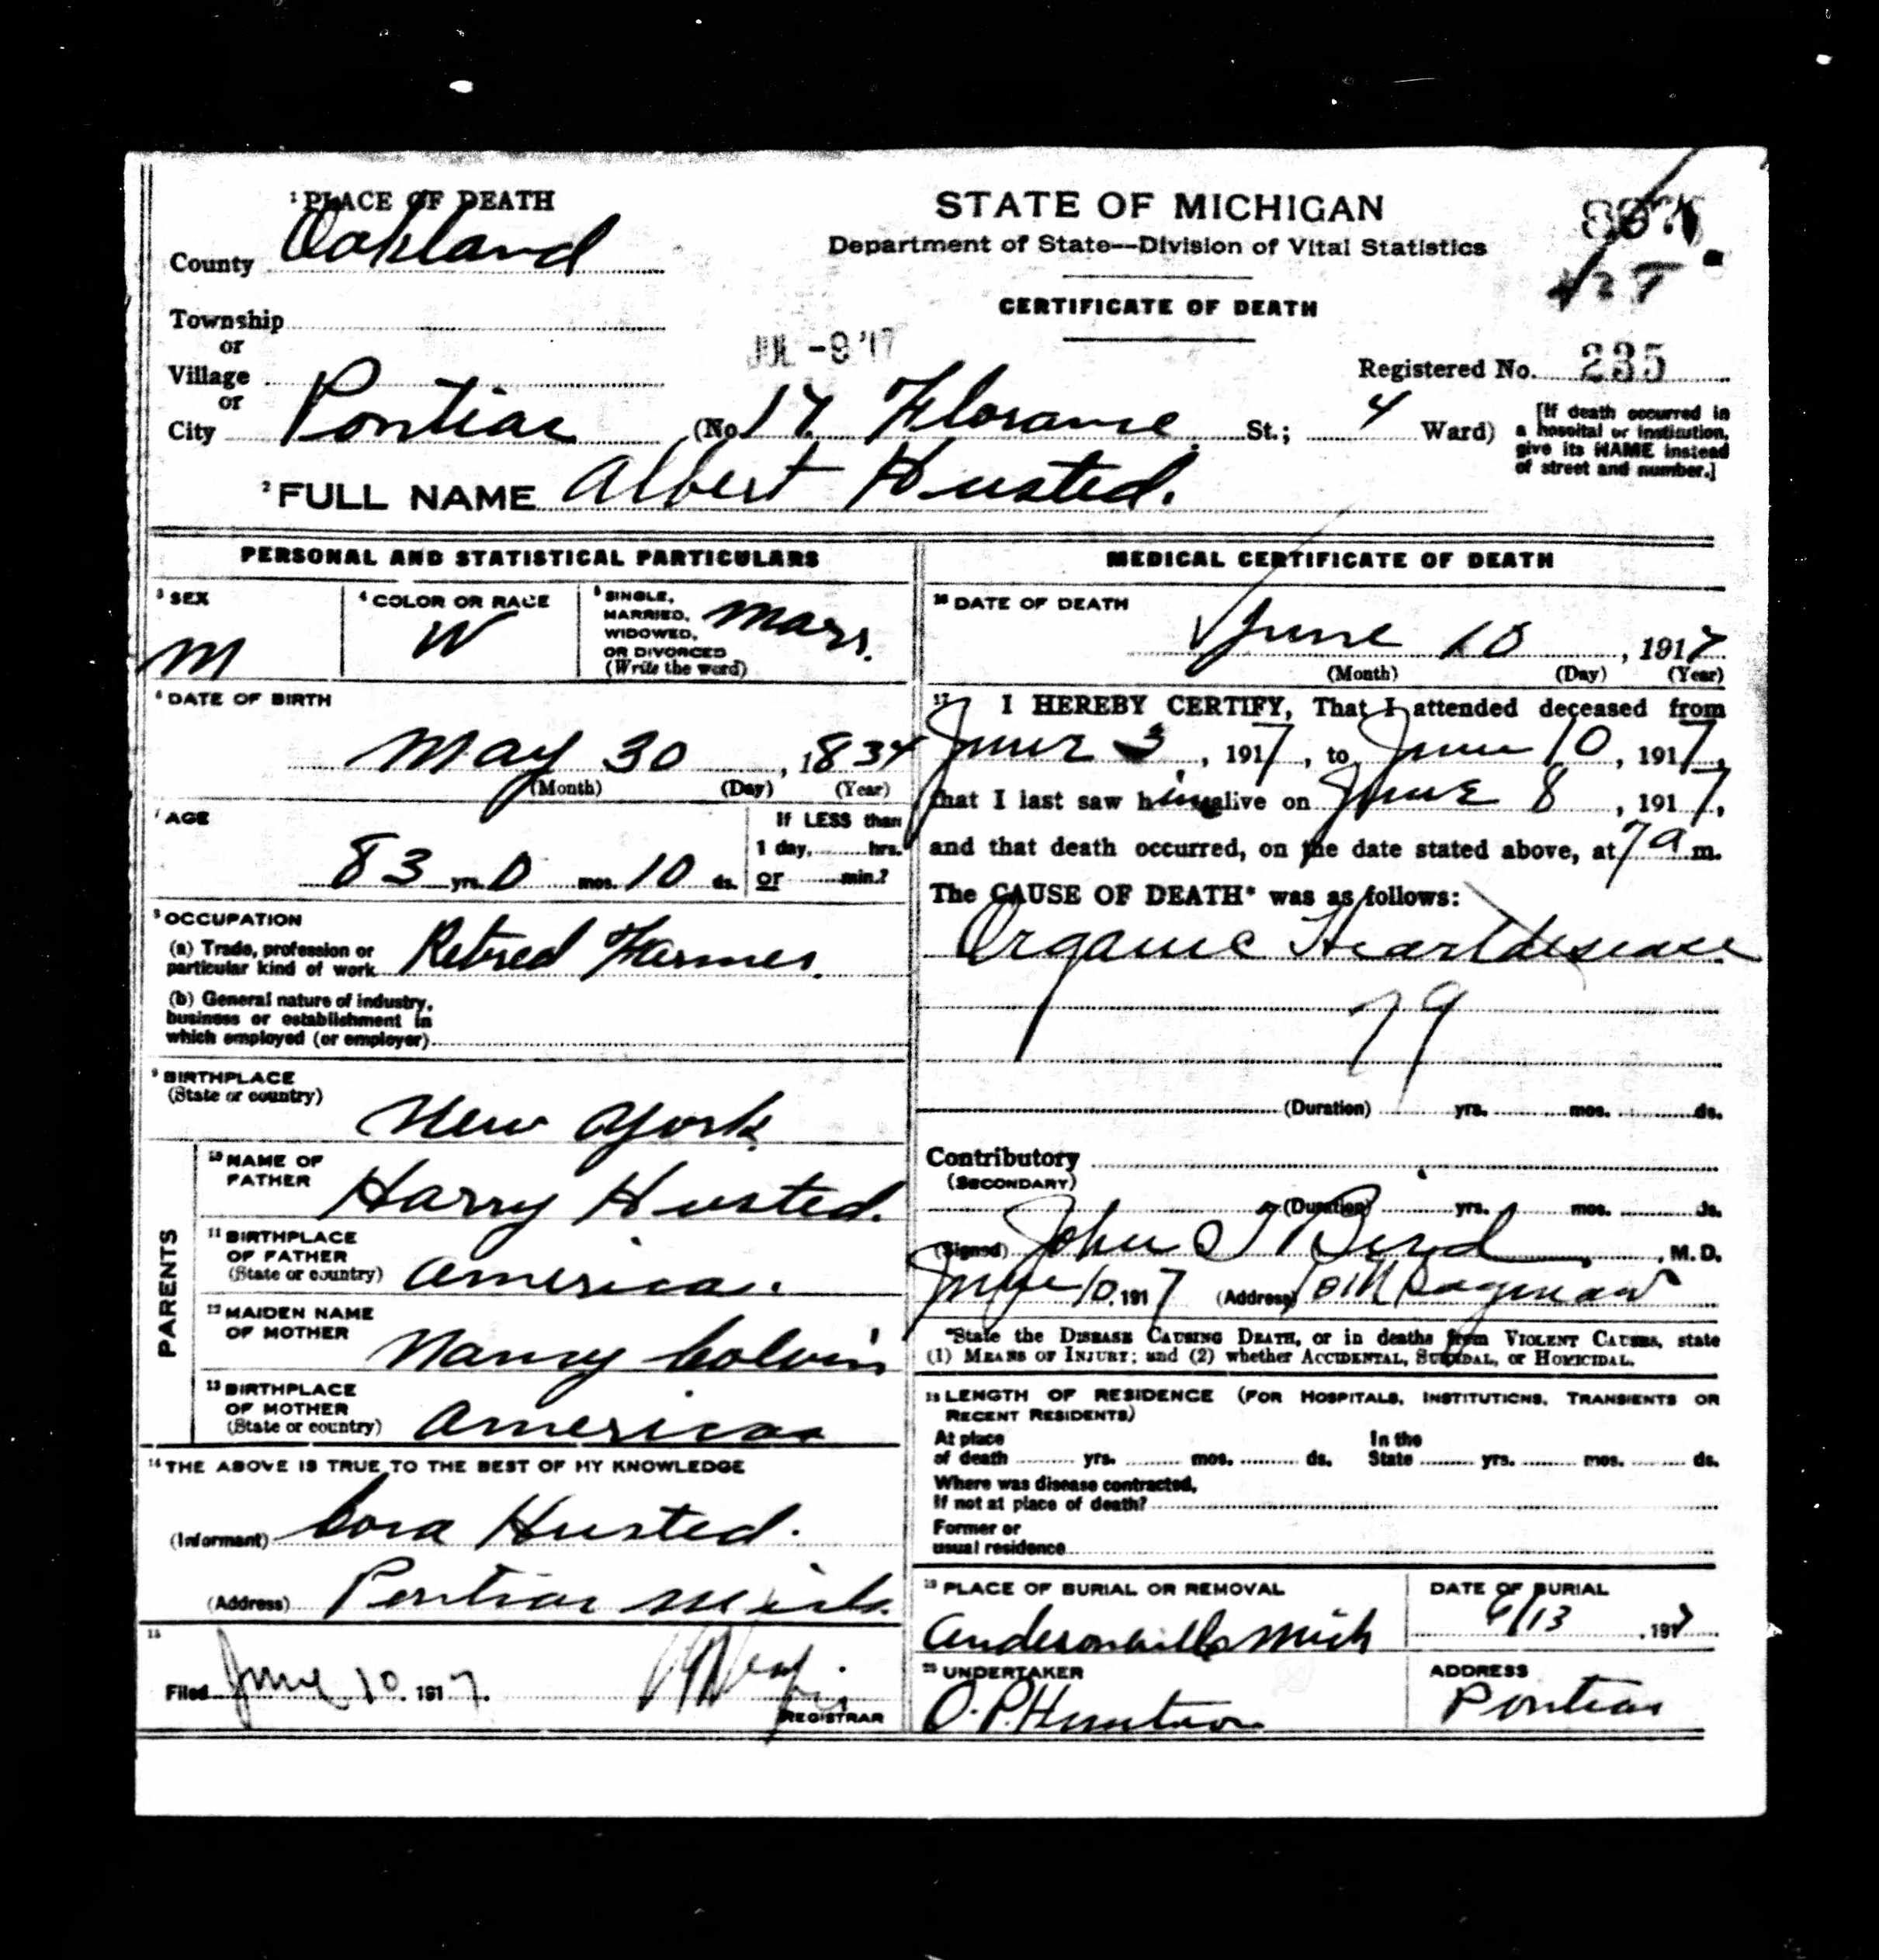 1 PLACE OF DEATH
County Oakland
Township
or
Village
or
City Pontiac (No. 17. Florance St.; 4 Ward)
STATE OF MICHIGAN
Department of State—Division of Vital Statistics
CERTIFICATE OF DEATH
JUL -9 '17
Registered No. 235
[If death occurred in
a hospital or institution,
give its NAME instead
of street and number.]
2 FULL NAME Albert Husted.
PERSONAL AND STATISTICAL PARTICULARS
3 SEX
M
4 COLOR OR RACE
W
5 SINGLE,
MARRIED,
WIDOWED,
OR DIVORCED
(Write the word)
Marr.
6 DATE OF BIRTH
May 30, 1834
(Month) (Day) (Year)
7 AGE
83 yrs. 0 mos. 10 ds.
If LESS than
1 day, hrs.
or min.?
8 OCCUPATION
(a) Trade, profession or
particular kind of work Retired Farmer.
(b) General nature of industry,
business or establishment in
which employed (or employer)
9 BIRTHPLACE
(State or country)
New York
PARENTS
10 NAME OF
FATHER
Harry Husted.
11 BIRTHPLACE
OF FATHER
(State or country) America.
12 MAIDEN NAME
OF MOTHER
Nancy Colvin
13 BIRTHPLACE
OF MOTHER
(State or country) America
14 THE ABOVE IS TRUE TO THE BEST OF MY KNOWLEDGE
(Informant) Cora Husted.
(Address) Pontiac Mich.
15
Filed June 10, 1917.
REGISTRAR
MEDICAL CERTIFICATE OF DEATH
16 DATE OF DEATH
June 10, 1917
(Month) (Day) (Year)
17 I HEREBY CERTIFY, That I attended deceased from
June 3, 1917, to June 10, 1917,
that I last saw him alive on June 8, 1917,
and that death occurred, on the date stated above, at 7 a m.
The CAUSE OF DEATH* was as follows:
Organic Heart disease
79
(Duration) yrs. mos. ds.
Contributory
(SECONDARY)
(Duration) yrs. mos. ds.
(Signed) John J Bird, M. D.
June 10, 1917 (Address) Saginaw
*State the DISEASE CAUSING DEATH, or in deaths from VIOLENT CAUSES, state
(1) MEANS OF INJURY; and (2) whether ACCIDENTAL, SUICIDAL, or HOMICIDAL.
18 LENGTH OF RESIDENCE (FOR HOSPITALS, INSTITUTIONS, TRANSIENTS OR
RECENT RESIDENTS)
At place
of death yrs. mos. ds.
In the
State yrs. mos. ds.
Where was disease contracted,
If not at place of death?
Former or
usual residence
19 PLACE OF BURIAL OR REMOVAL
Andersonville Mich
DATE OF BURIAL
6/13, 1917
20 UNDERTAKER
O.P. Huntoon
ADDRESS
Pontiac